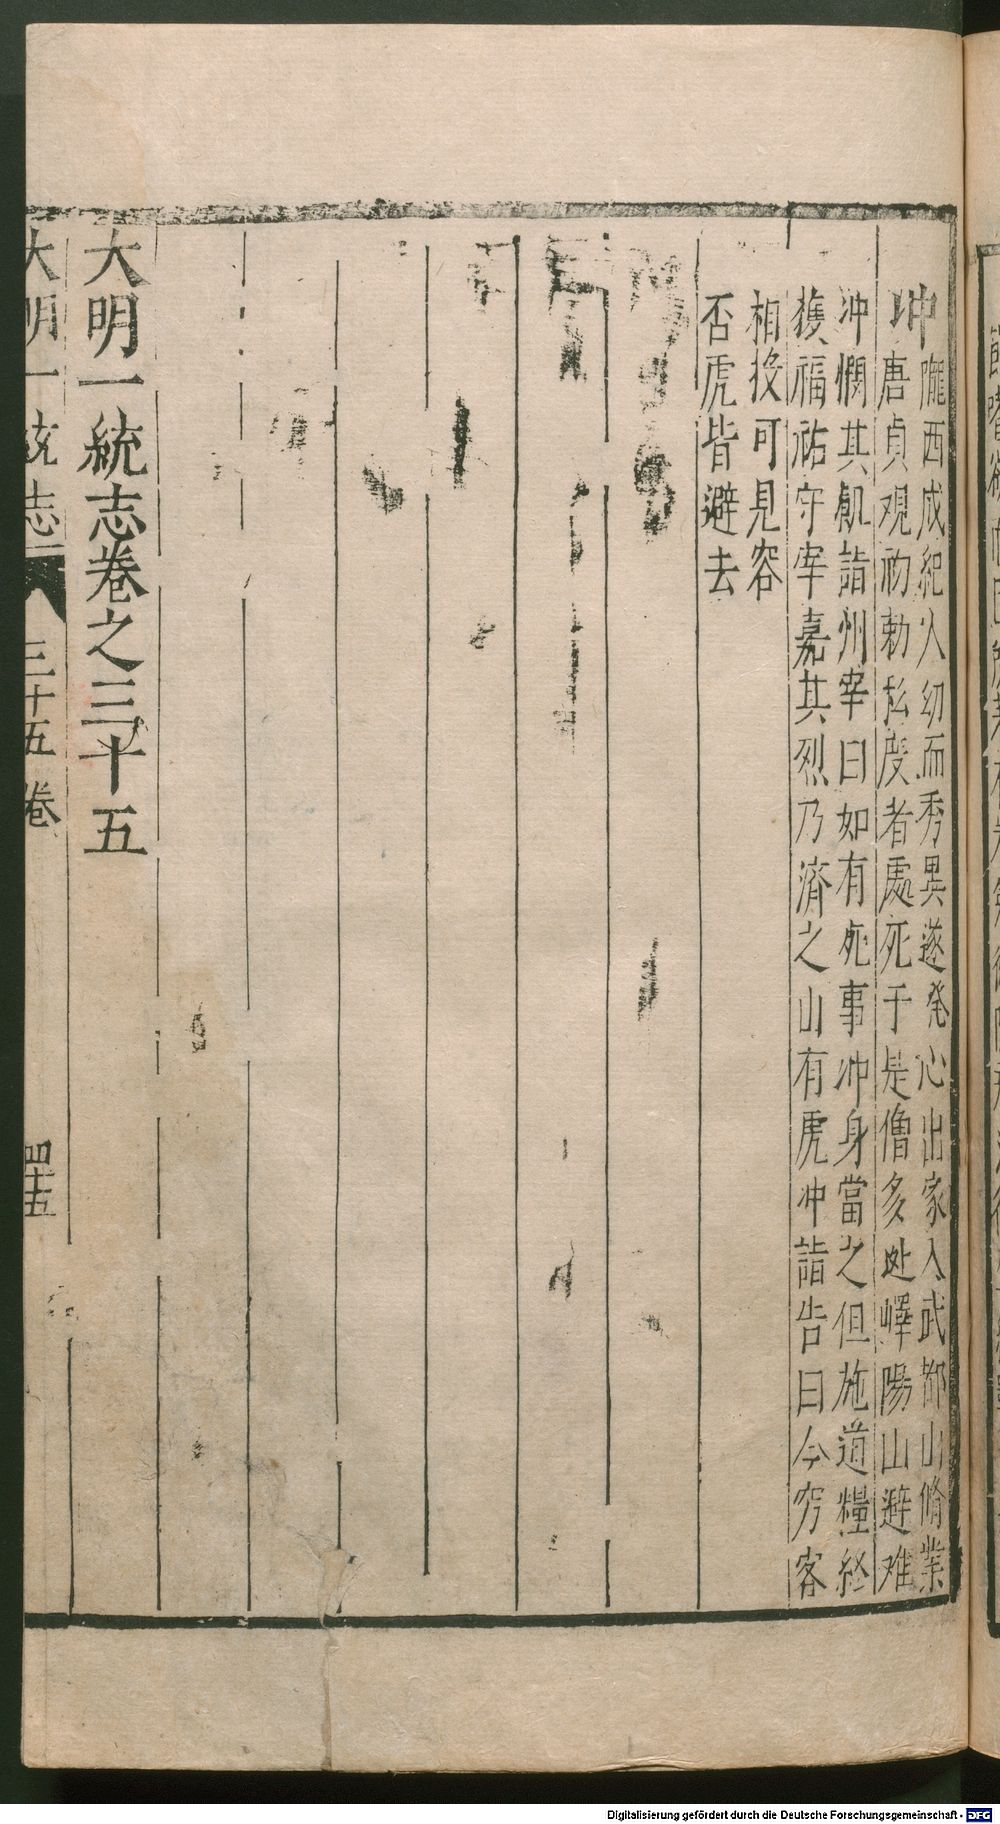 冲
隴西成紀人幼而秀異遂発心出家入武都山脩業
唐貞观初勅私度者處死于是僧多迯嶧陽山避难
冲憫其飢詣州宰曰如有死事冲身當之但施道糧終
獲福祐守宰嘉其烈乃濟之山有虎冲詣告曰今穷客
相投可見容
否虎皆避去
大明一統志卷之三十五
大明一统志 三十五卷 四十五
Digitalisierung gefördert durch die Deutsche Forschungsgemeinschaft - DFG